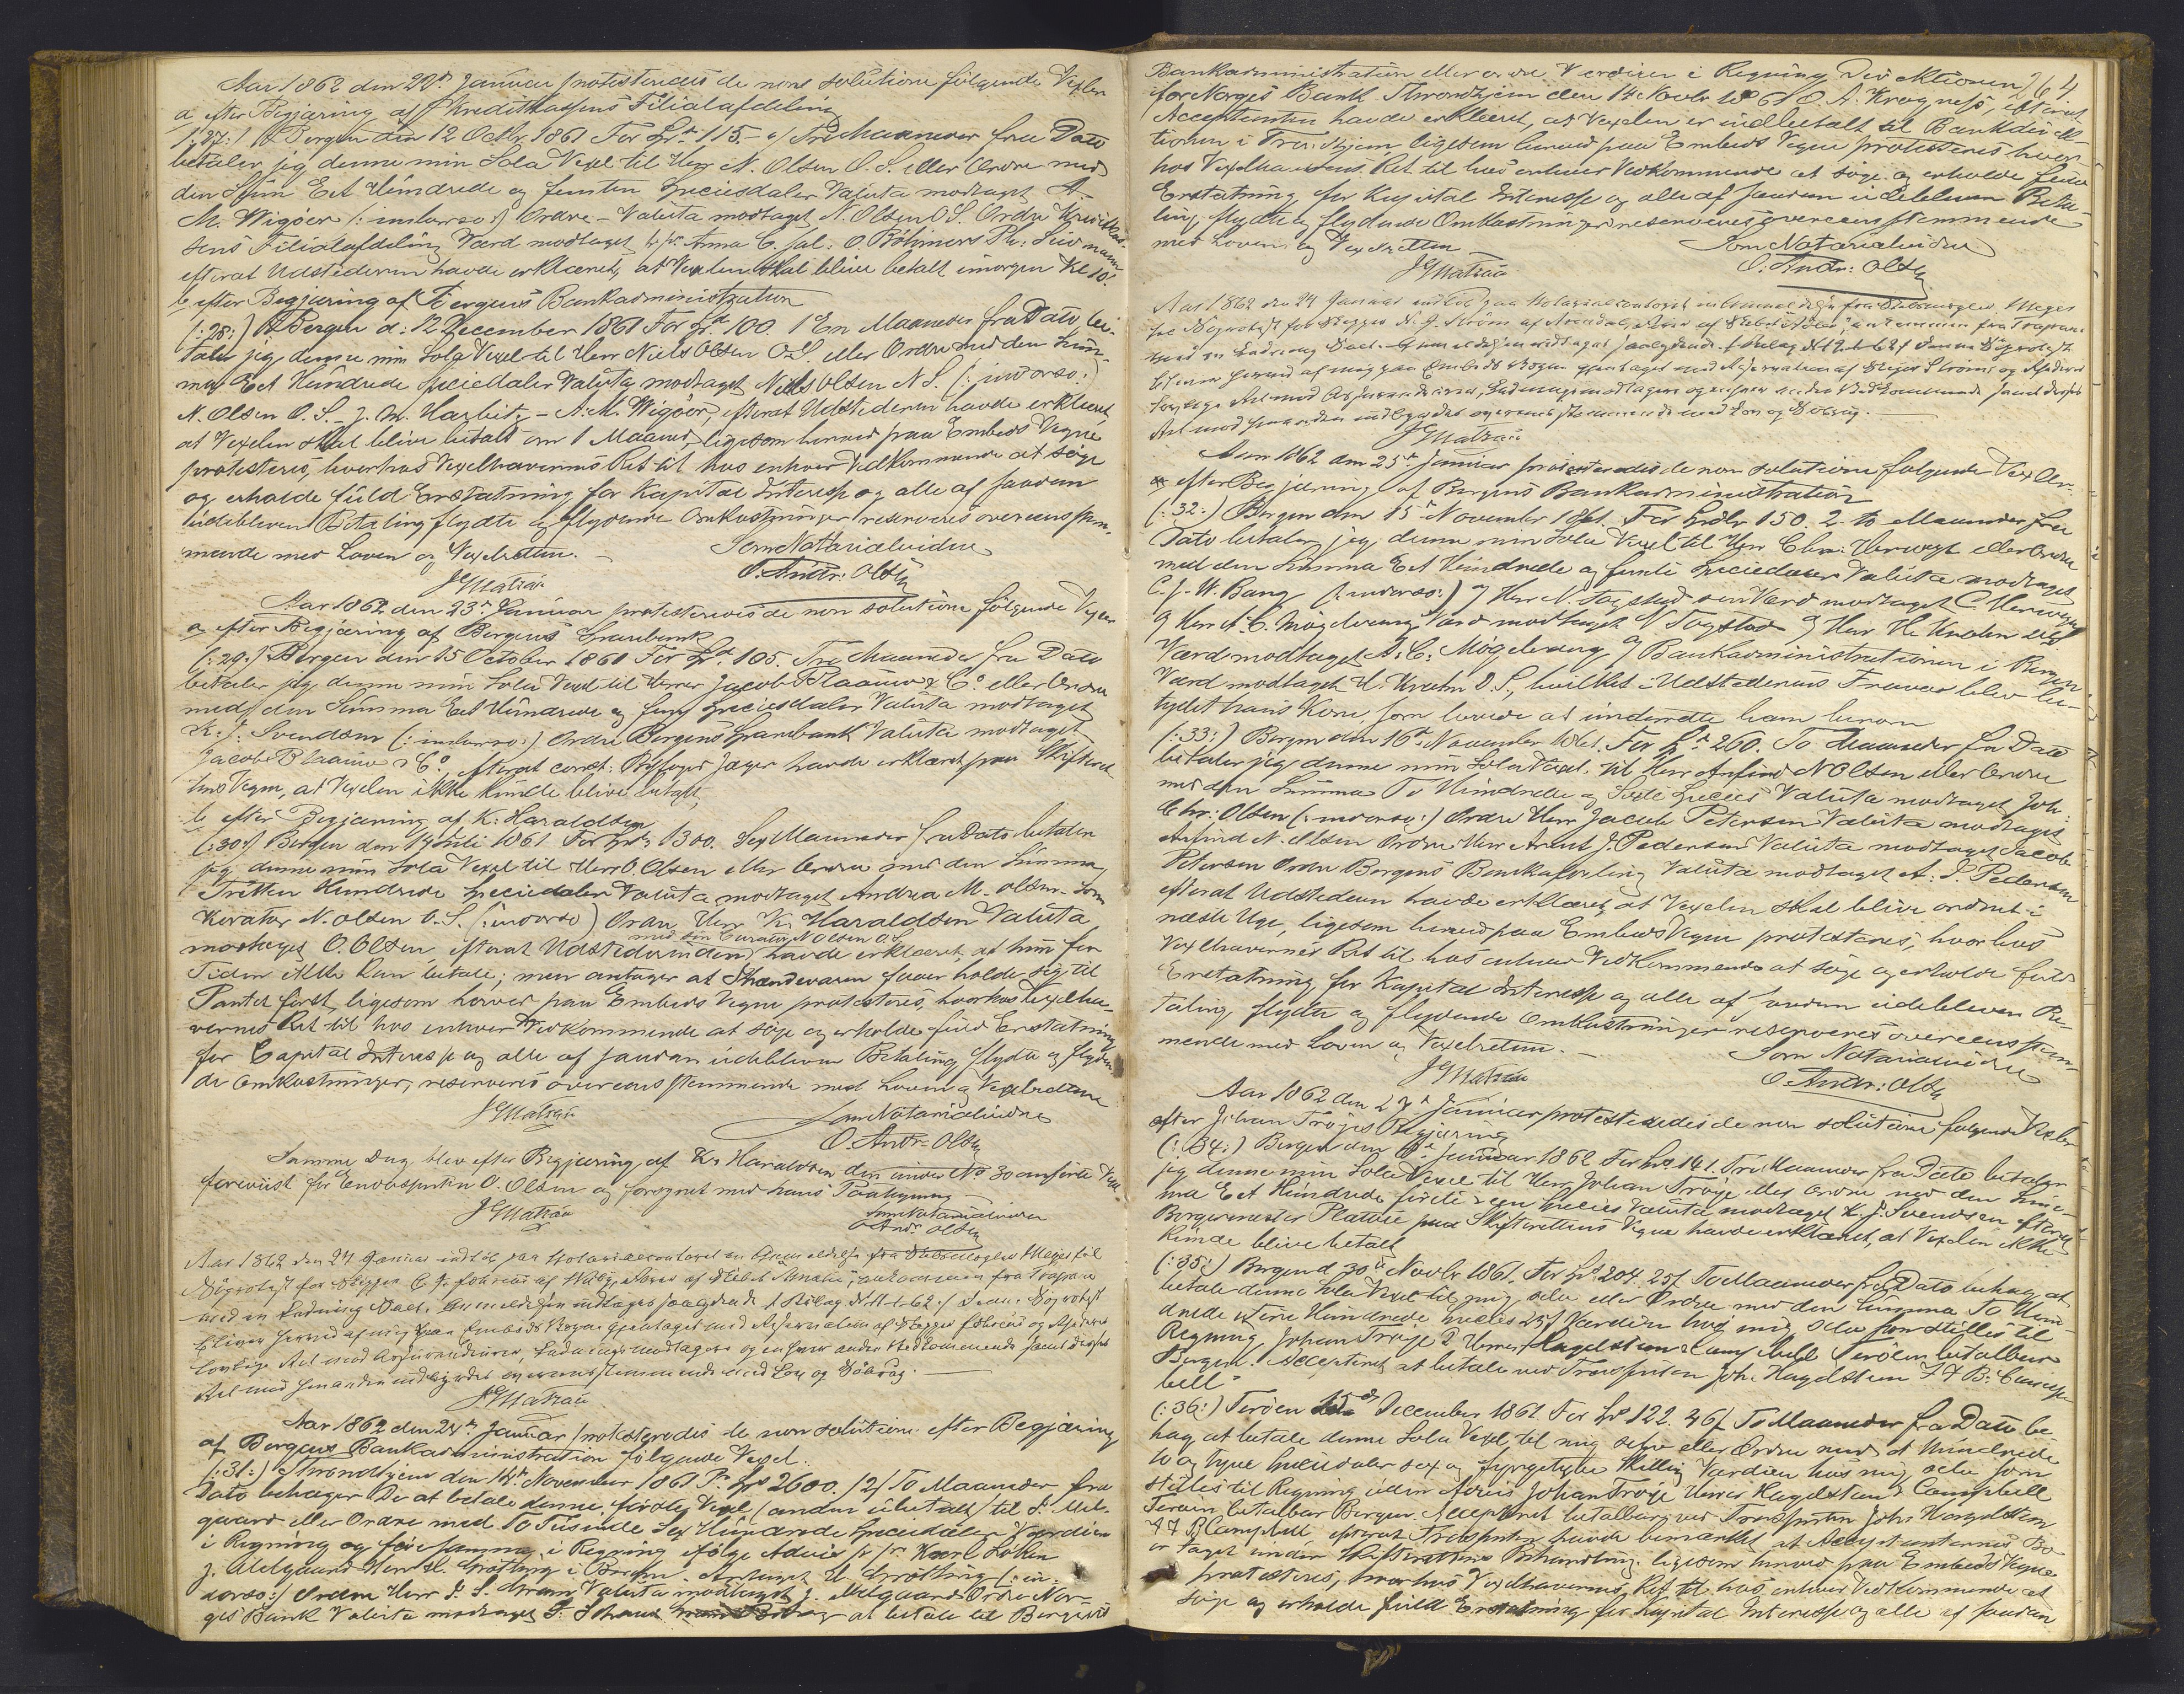 Aar 1862 den 22de Januar protesteredes de non solutione følgende Vexler
a efter Begjæring af Kreditkassens Filialafdeling
(:27:) Bergen den 12 Octbr 1861 For Spd 115 – Tre Maaneder fra Dato
betaler jeg denne min Sola Vexel til Herr N. Olsen O.S. eller Ordre med
den Sum Eet Hundrede og femten Speciesdaler Valuta modtaget A.
M. Wigöer (: in dorso :) Ordre – Valuta modtaget N. Olsen O.S. Ordre Kreditkas-
sens Filialafdeling Værd modtaget Anna C. sal: O. Böhmers
efterat Udstederen havde erklæret, at Vexlen skal blive betalt imorgen Kl 10.
b efter Begjæring af Bergens Bankadministration
(:28:) Bergen d: 12 December 1861 For Spd 100. 1 En Maaneder fra Dato be-
taler jeg denne min Sola Vexel til Herr Niels Olsen O.S. eller Ordre med den Sum-
ma Eet Hundrede Speciedaler Valuta modtaget Niels Olsen N S. (: in dorso :)
N. Olsen O.S. J. M. Harbitz – A. M. Wigöer, efterat Udstederen havde erklæret
at Vexelen skal blive betalt om 1 Maaned, ligesom herved paa Embeds Vegne
protesteres, hvorhos Vexelhaverens Ret til hos enhver Vedkommende at söge
og erholde fuld Erstatning for Kapital Interesse og alle af saadan
udebleven Betaling flydte og flydende Omkostninger reserveres overeensstem-
mende med Loven og Vexelretten. –
Som Notarialvidne
JGMatzau O. Andr: Olsen
Aar 1862 den 23de Januar protesteredes de non solutione følgende Vexler
a, efter Begjæring af Bergens Sparebank
(:29:) Bergen den 15 October 1861 For Spd 105. Tre Maaneder fra Dato
betaler jeg denne min Sola Vexel til Herrer Jacob Blaauw & Co eller Ordre
med den Summa Eet Hundrede og fem Speciesdaler Valuta modtaget
K. J. Svendsen (: in dorso :) Ordre Bergens Sparebank Valuta modtaget
Jacob Blaauw & Co efterat const: Byfoged Jæger havde erklæret paa Skifteret-
tens Vegne, at Vexelen ikke kunde blive betalt,
b efter Begjæring af K: Haraldsen
(:30:) Bergen den 19 Juli 1861 For Spd 1300. Sex Maaneder fra Dato betaler
jeg denne min Sola Vexel til Herr O. Olsen eller Ordre med den Summa
Tretten Hundrede Speciedaler Valuta modtaget Andrea M. Olsen. Som
Kurator N. Olsen O.S. (: in dorso ) Ordre Herr K. Haraldsen Valuta
modtaget O. Olsen, efterat Udstederinden med sin Curator N Olsen O.S. havde erklæret, at hun for
Tiden ikke kan betale; men antager at Ihændehaveren faaer holde sig til
Pantet först, ligesom herved paa Embeds Vegne protesteres, hvorhos Vexelha-
verens Ret til hos enhver Vedkommende at söge og erholde fuld Erstatning
for Capital Interesse og alle af saadan udebleven Betaling flydte og flyden-
de Omkostninger, reserveres overeensstemmende med Loven og Vexelretten
JGMatzau Som Notarialvidne
O. Andr: Olsen
Samme Dag blev efter Begjæring af K. Haraldsen den under No 30 anførte Vexel
foreviist for Endossenten O. Olsen og forsynet med hans Paategning
JGMatzau Som Notarialvidne
O Andr Olsen
Aar 1862 den 24 Januar indløb paa Notarialcontoret en Anmeldelse fra Skibsmægler Meyer til
Söprotest for Skipper C. J. Johnsen af Skibet Amalia, ankommen fra Trapani
med en Ladning Salt. Anmeldelsen indtages saalydende / Bilag No 11-1-62 / Denne Söprotest
bliver herved af mig paa Embeds Vegne gjentaget med Reservation af Skipper Johnsens og Rederies
lovlige Ret mod Assurandeurer, Ladningsmodtagere og enhver anden Vedkommende samt disses
Ret mod hinanden indbyrdes overeensstemmende med Lov og Söbrug. –
JGMatzau
Aar 1862 den 24de Januar protesteredes de non solutione efter Begjæring
af Bergens Bankadministration følgende Vexel.
(:31:) Throndhjem den 14de November 1861 Pr Spd 2600. /2/ To Maaneder fra
Dato behager De at betale denne første Vexel (anden ubetalt) til J. Mel-
gaard eller Ordre med To Tusinde Sex Hundrede Speciedaler Værdien
i Regning og før samme i Regning ifølge Advis p pr Karl Løken
J. Meldgaard Herr H. Grötting i Bergen. Antaget H Grötting (: in-
dorso:) Ordre Herr J. S. Gram Valuta modtaget J. Melgaard Ordre Nor-
ges Bank Valuta modtaget at betale til Bergens

Bankadministration eller ordre Værdien i Regning Direktionen 264
for Norges Bank Throndhjem den 14 Novbr 1861 O. A. Krogness, efterat
Acceptanten havde erklæret, at Vexelen er indbetalt til Bankdirek-
tionen i Trondhjem ligesom herved paa Embeds Vegne protesteres hvor-
hos Vexelhaverens Ret til hos enhver Vedkommende at söge og erholde fuld
Erstatning for Kapital Interesse og alle af saadan udebleven Beta-
ling flydte og flydende Omkostninger reserveres overeensstemmende
med Loven og Vexelretten
Som Notarialvidne
JGMatzau O. Andr: Olsen
Aar 1862 den 24 Januar indløb paa Notarialcontoret en Anmeldelse fra Skibsmægler Meyer
til Söprotest for Skipper N. J. Ström af Arendal, af Skibet , ankommen fra Trapani
med en Ladning Salt. Anmeldelsen indtages saalydende / Bilag No 12-1-62 / Denne Söprotest
bliver herved af mig paa Embeds Vegne gjentaget med Reservation af Skipper Ströms og Rederies
lovlige Ret mod Assurandeurer, Ladningsmodtagere og enhver anden Vedkommende samt disses
Ret mod hinanden indbyrdes overeensstemmende med Lov og Söbrug. –
JGMatzau
Aar 1862 den 25de Januar protesteredes de non solutione følgende Vexler
efter Begjæring af Bergens Bankadministration
(:32:) Bergen den 15de November 1861. For Spdlr 150. 2. to Maaneder fra
Dato betaler jeg denne min Sola Vexel til Herr Chr. Herwegh eller Ordre
med den Summa Eet Hundrede og femti Speciedaler Valuta modtaget
C. J. W. Bang (: in dorso :) Herr N. Togstad Værd modtaget C. Herwegh
Herr A. C. Mögelvang Værd modtaget N Togstad Herr H. Krohn
Værd modtaget A. C. Mögelvang Bankadministrationen i Bergen
Værd modtaget H. Krohn D. S., hvilket i Udstederens Fravær blev be-
tydet hans Kone, som lovede at underrette ham herom
(:33:) Bergen den 16de November 1861. For Spd 260. To Maaneder fra Dato
betaler jeg denne min Sola Vexel til Herr Anfind N Olsen eller Ordre
med den Summa To Hundrede og Sexti Species Valuta modtaget Joh:
Chr: Olsen (: in dorso :) Ordre Herr Jacob Petersen Valuta modtaget
Anfind N. Olsen Ordre Herr Arent J. Pedersen Valuta modtaget Jacob
Petersen Ordre Bergens Bankafdeling Valuta modtaget A. J. Pedersen
efterat Udstederen havde erklæret, at Vexelen skal blive ordnet i
næste Uge, ligesom herved paa Embeds Vegne protesteres, hvorhos
Vexelhaverens Ret til hos enhver Vedkommende at söge og erholde fuld
Erstatning for Kapital Interesse og alle af saadan udebleven Be-
taling flydte og flydende Omkostninger reserveres overeensstem-
mende med Loven og Vexelretten. –
Som Notarialvidne
JGMatzau O. Andr: Olsen
Aar 1862 den 27de Januar protesteredes de non solutione følgende Vexler
efter Johan Tröjes Begjæring
(:34:) Bergen den Januar 1862 For Spd 141. Tre Maaneder fra Dato betaler
jeg denne min Sola Vexel til Herr Johan Tröje eller Ordre med den Sum-
ma Eet Hundrede firti een Species Valuta modtaget K. J. Svendsen efterat
Borgermester Platou paa Skifterettens Vegne havde erklæret, at Vexelen ikke
kunde blive betalt
(:35:) Bergen d 30te Novbr 1861. For Spd 204. 25 s To Maaneder fra Dato behag at
betale denne Sola Vexel til mig selv eller Ordre med den Summa To Hun-
drede fire Species 25 s Værdien hos mig selv som stilles til
Regning Johan Tröje Herrer Hagelsteen & Campbell Teröen betalbar
Bergen. Accepteret at betale ved Joh. Hagelsteen F F B: Camp-
bell"
(:36:) Teröen December 1861 For Spd 122. 46 s To Maaneder fra Dato be-
hag at betale denne Sola Vexel til mig selv eller Ordre med et Hundrede
to og tyve Speciedaler sex og fyrgetyve Skilling Værdien hos mig selv som
stilles til Regning uden Advis Johan Tröje Herrer Hagelsteen & Campbell
Teröen betalbar Bergen. Accepteret betalbar ved Joh: Hagelsteen
F F B Campbell efterat havde bemærket at Acceptanternes Bo
er taget under Skifterettens Behandling. ligesom herved paa Embeds Vegne
protesteres, hvorhos Vexelhaverens Ret til hos enhver Vedkommende at
söge og erholde fuld Erstatning for Kapital Interesse og alle af saadan